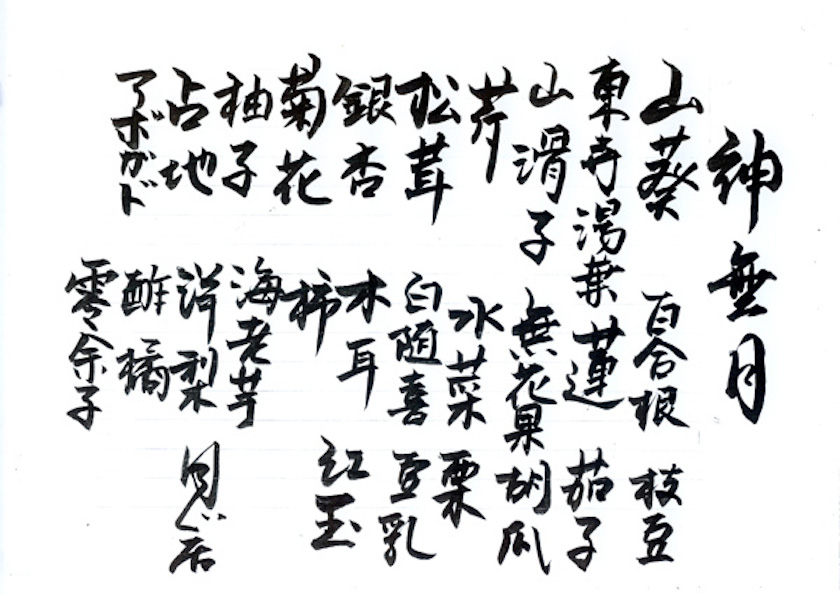 神無月
山葵 百合根 枝豆
東寺湯葉 蓮 茄子
山滑子 無花果 胡瓜
芹 水菜 栗
松茸 白随喜 豆乳
銀杏 木耳 紅玉
菊花 柿
柚子 海老芋
占地 洋梨
アボガド 酢橘
零余子